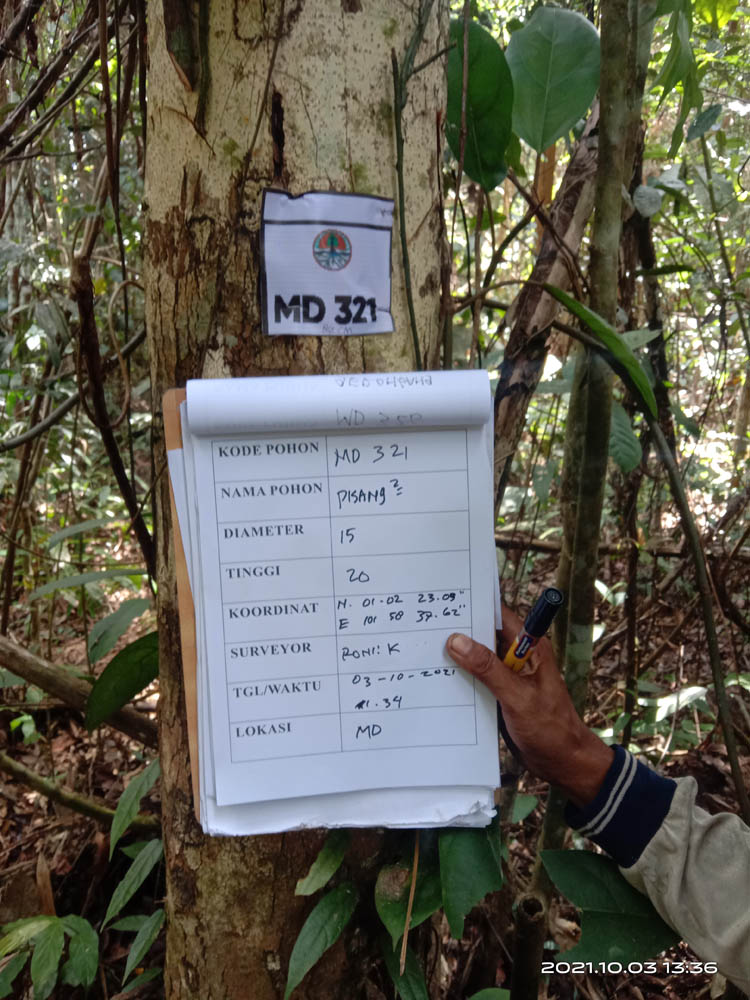 MD 321
KODE POHON MD 321
NAMA POHON PISANG²
DIAMETER 15
TINGGI 20
KOORDINAT N. 01.02 23.09"
E 101 58 37.62"
SURVEYOR RONI. K
TGL/WAKTU 03-10-2021
.34
LOKASI MD
2021.10.03 13:36